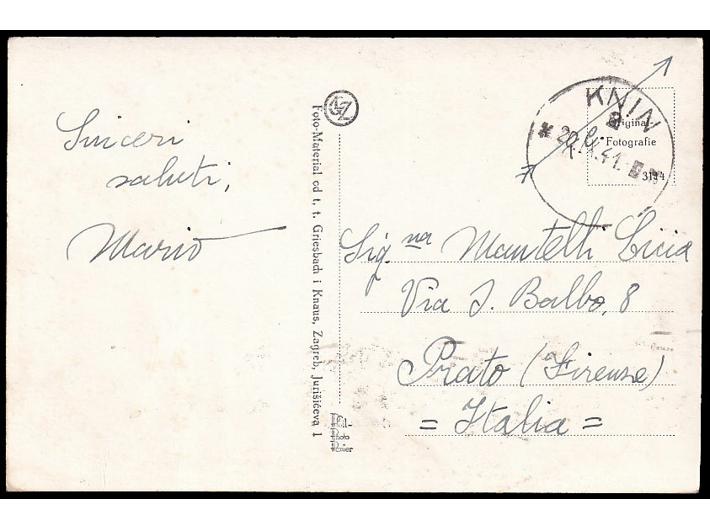 Sinceri
saluti,
Mario
GKZ
Foto-Material od t. t. Griesbach i Knaus, Zagreb, Jurišićeva 1
KNIN
Original-
Fotografie
3144
41.
Sig.na Mantelli Licia
Via I. Balbo, 8
Prato (Firenze)
= Italia =